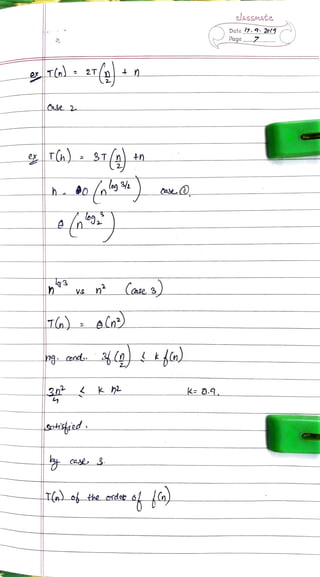 classmate
Date 17.9.2019
Page 7
ex T(n) = 2T(n/2) + n
Case 2
ex T(n) = 3T(n/2) + n
n = O(n^log 3/2) case ①.
θ(n^log₂3)
n^lg3 vs n² (case 3)
T(n) = θ(n²)
reg. cond. 3f(n/2) ≤ k f(n)
3n²/4 ≤ k n² k = 0.9.
satisfied.
by case 3.
T(n) of the order of f(n)